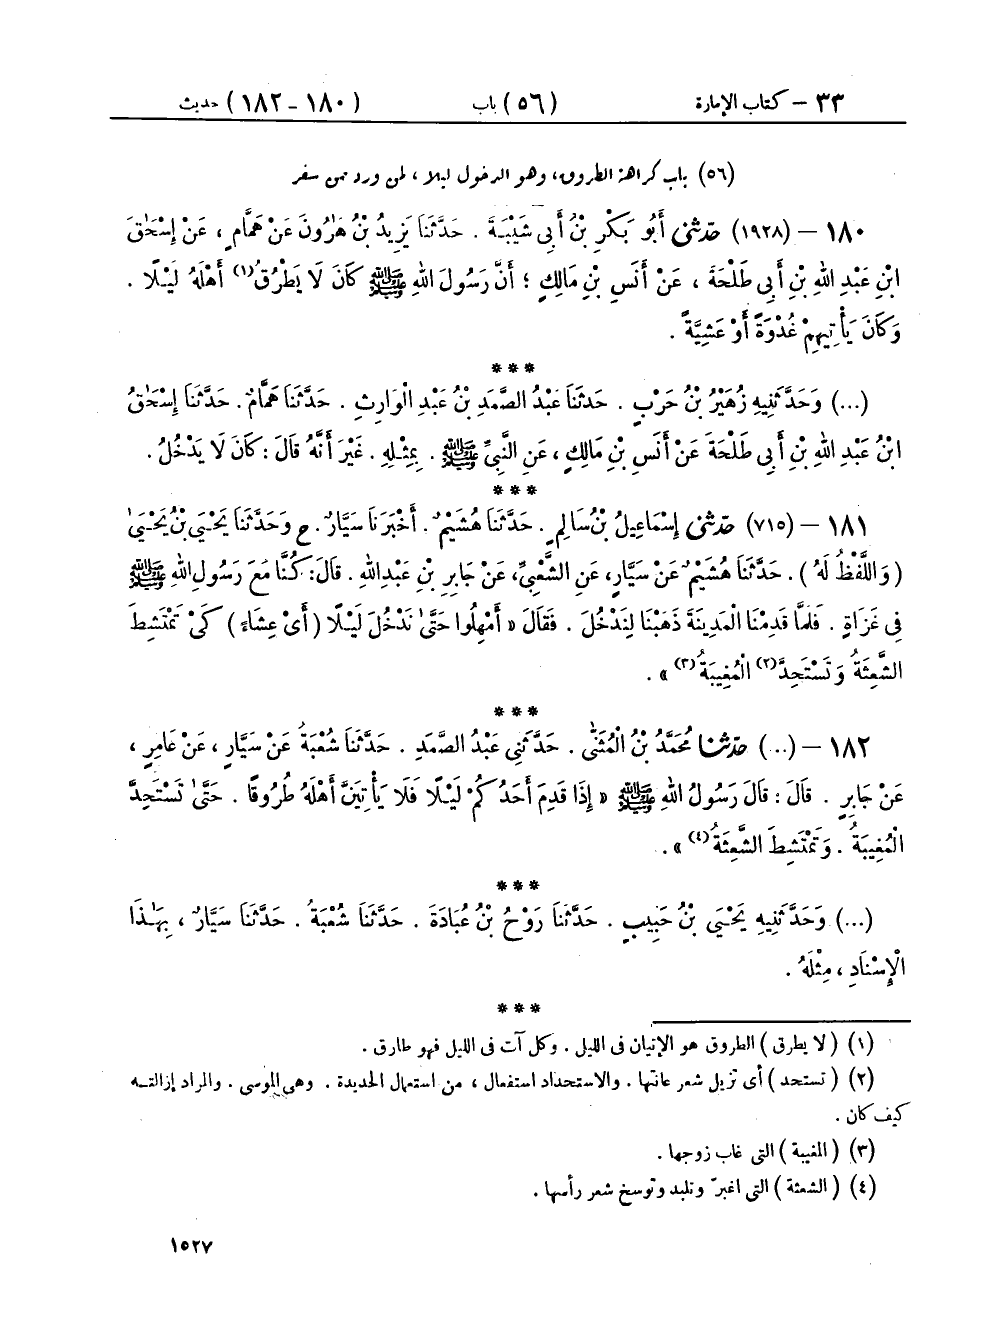 ٣٣ – كتاب الإمارة (٥٦) باب (١٨٠ – ١٨٢) حديث
(٥٦) باب كراهة الطروق، وهو الدخول ليلا، لمن ورد من سفر
١٨٠ – (١٩٢٨) حَدَّثَنِي أَبُو بَكْرِ بْنُ أَبِي شَيْبَةَ . حَدَّثَنَا يَزِيدُ بْنُ هَارُونَ عَنْ هَمَّامٍ ، عَنْ إِسْحَاقَ
ابْنِ عَبْدِ اللهِ بْنِ أَبِي طَلْحَةَ ، عَنْ أَنَسِ بْنِ مَالِكٍ ؛ أَنَّ رَسُولَ اللهِ ﷺ كَانَ لَا يَطْرُقُ(١) أَهْلَهُ لَيْلًا .
وَكَانَ يَأْتِيهِمْ غُدْوَةً أَوْ عَشِيَّةً .
***
(...) وَحَدَّثَنِيهِ زُهَيْرُ بْنُ حَرْبٍ . حَدَّثَنَا عَبْدُ الصَّمَدِ بْنُ عَبْدِ الْوَارِثِ . حَدَّثَنَا هَمَّامٌ . حَدَّثَنَا إِسْحَاقُ
ابْنُ عَبْدِ اللهِ بْنِ أَبِي طَلْحَةَ عَنْ أَنَسِ بْنِ مَالِكٍ ، عَنِ النَّبِيِّ ﷺ . بِمِثْلِهِ . غَيْرَ أَنَّهُ قَالَ : كَانَ لَا يَدْخُلُ .
***
١٨١ – (٧١٥) حَدَّثَنِي إِسْمَاعِيلُ بْنُ سَالِمٍ . حَدَّثَنَا هُشَيْمٌ . أَخْبَرَنَا سَيَّارٌ . ح وَحَدَّثَنَا يَحْيَى بْنُ يَحْيَى
( وَاللَّفْظُ لَهُ ) . حَدَّثَنَا هُشَيْمٌ عَنْ سَيَّارٍ، عَنِ الشَّعْبِيِّ، عَنْ جَابِرِ بْنِ عَبْدِ اللهِ . قَالَ : كُنَّا مَعَ رَسُولِ اللهِ ﷺ
فِي غَزَاةٍ . فَلَمَّا قَدِمْنَا الْمَدِينَةَ ذَهَبْنَا لِنَدْخُلَ . فَقَالَ « أَمْهِلُوا حَتَّى نَدْخُلَ لَيْلًا ( أَيْ عِشَاءً ) كَيْ تَمْتَشِطَ
الشَّعِثَةُ وَتَسْتَحِدَّ(٢) الْمُغِيبَةُ(٣) » .
***
١٨٢ – (...) حَدَّثَنَا مُحَمَّدُ بْنُ الْمُثَنَّى . حَدَّثَنِي عَبْدُ الصَّمَدِ . حَدَّثَنَا شُعْبَةُ عَنْ سَيَّارٍ ، عَنْ عَامِرٍ ،
عَنْ جَابِرٍ . قَالَ : قَالَ رَسُولُ اللهِ ﷺ « إِذَا قَدِمَ أَحَدُكُمْ لَيْلًا فَلَا يَأْتِيَنَّ أَهْلَهُ طُرُوقًا . حَتَّى تَسْتَحِدَّ
الْمُغِيبَةُ . وَتَمْتَشِطَ الشَّعِثَةُ(٤) » .
***
(...) وَحَدَّثَنِيهِ يَحْيَى بْنُ حَبِيبٍ . حَدَّثَنَا رَوْحُ بْنُ عُبَادَةَ . حَدَّثَنَا شُعْبَةُ . حَدَّثَنَا سَيَّارٌ ، بِهَذَا
الْإِسْنَادِ ، مِثْلَهُ .
***
(١) ( لا يطرق ) الطروق هو الإتيان فى الليل . وكل آت فى الليل فهو طارق .
(٢) ( تستحد ) أى تزيل شعر عانتها . والاستحداد استفعال ، من استعمال الحديدة . وهى الموسى . والمراد إزالته
كيف كان .
(٣) ( المغيبة ) التى غاب زوجها .
(٤) ( الشعثة ) التى اغبرّ وتلبد وتوسخ شعر رأسها .
١٥٢٧